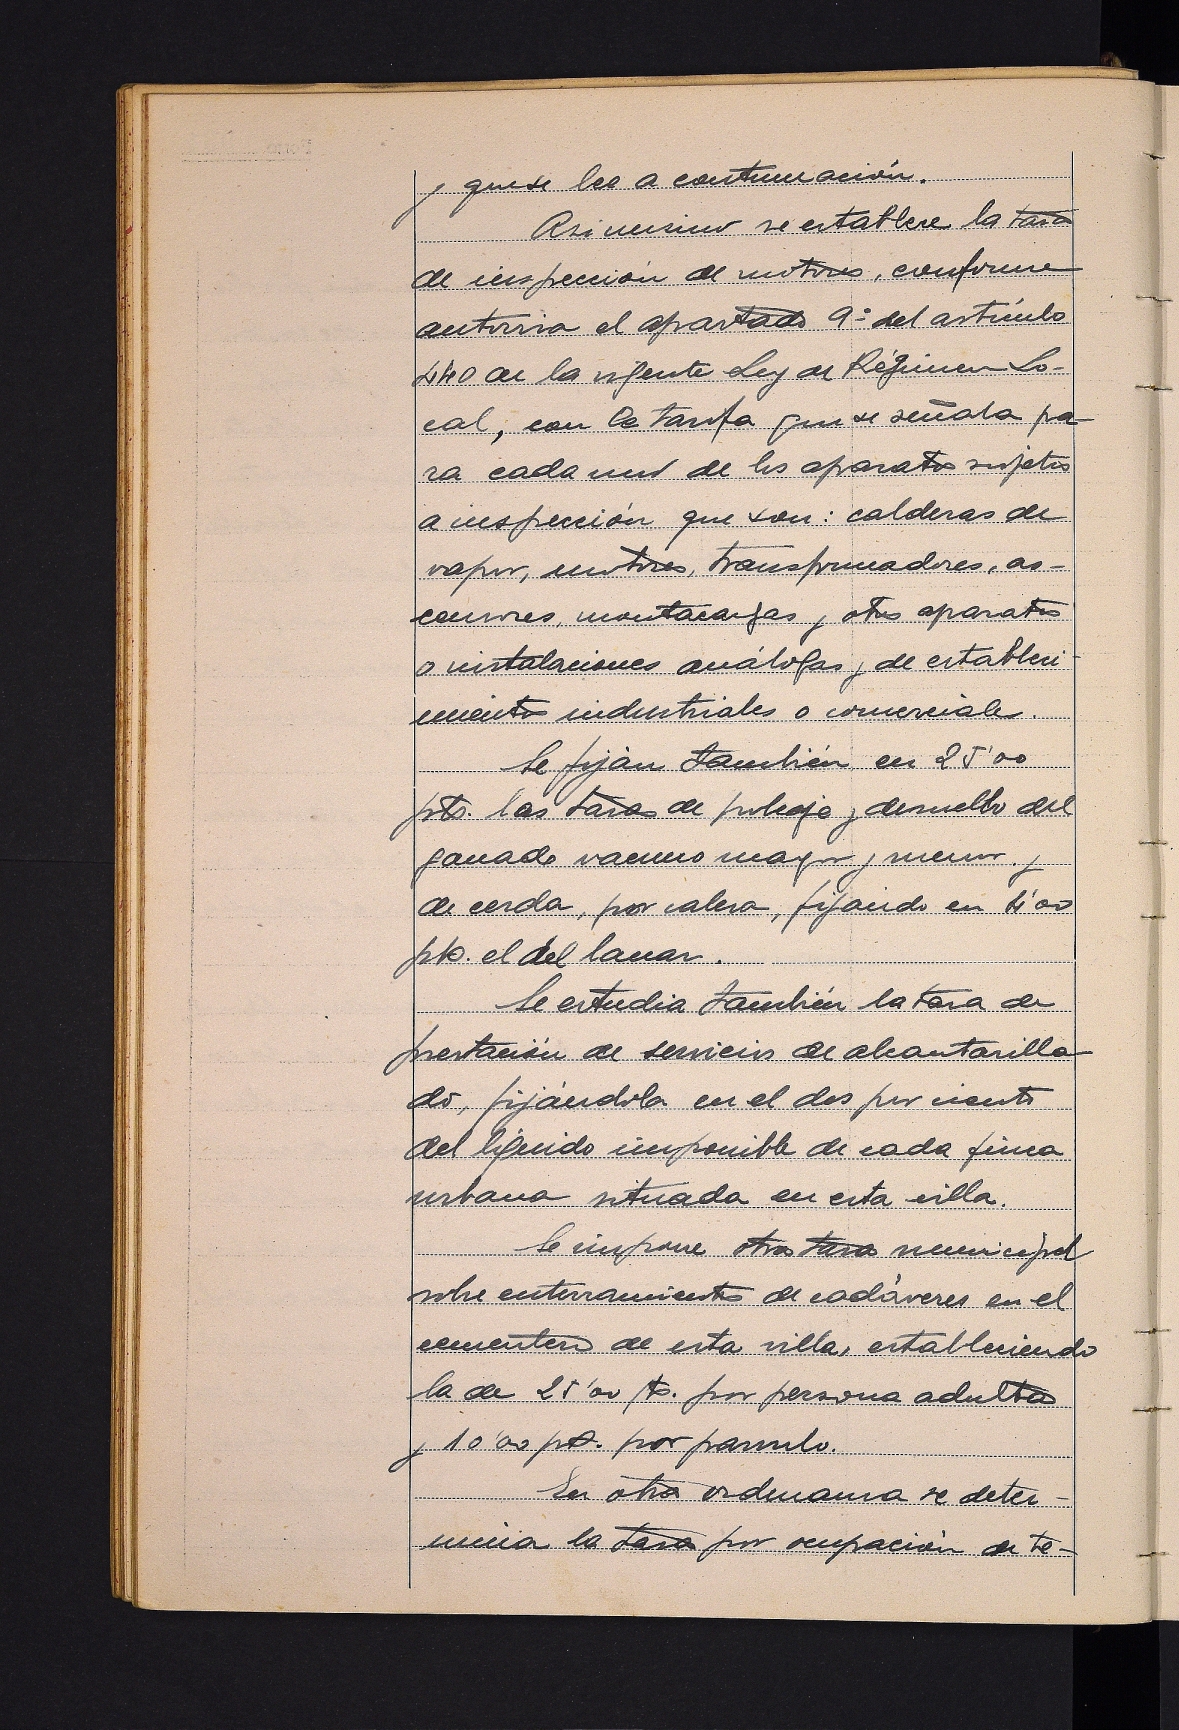 y que se lee a continuación.
Asimismo se establece la tasa
de inspección de motores, conforme
autoriza el apartado 9º del artículo
440 de la vigente Ley de Régimen Lo-
cal, con la tarifa que se señala pa-
ra cada uno de los aparatos sujetos
a inspección que son: calderas de
vapor, motores, transformadores, as-
censores, montacargas y otros aparatos
o instalaciones análogas y de estableci-
mientos industriales o comerciales.
Se fijan también en 25'00
pts. las tasas de y desuello del
ganado vacuno mayor y menor y
de cerda, por cabeza, fijando en 4'00
pts. el del lanar.
Se estudia también la tasa de
prestación de servicios de alcantarilla
do, fijándola en el dos por ciento
del líquido imponible de cada finca
urbana situada en esta villa.
Se impone otra tasa municipal
sobre enterramientos de cadáveres en el
cementerio de esta villa, estableciendo
la de 25'00 pts. por persona adulta
y 10'00 pts. por parvulo.
En otra ordenanza se deter-
mina la tasa por ocupación de te-